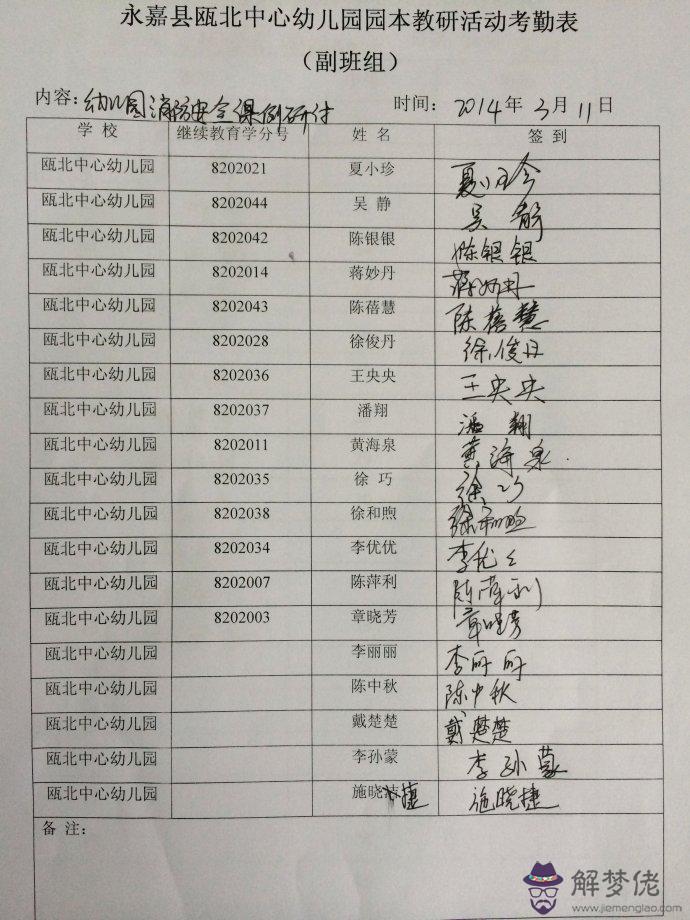 永嘉县瓯北中心幼儿园园本教研活动考勤表
（副班组）
内容：幼儿园消防安全课例研付 时间：2014年3月11日
学 校 继续教育学分号 姓 名 签 到
瓯北中心幼儿园 8202021 夏小珍 夏小珍
瓯北中心幼儿园 8202044 吴 静 吴 静
瓯北中心幼儿园 8202042 陈银银 陈银银
瓯北中心幼儿园 8202014 蒋妙丹 蒋妙丹
瓯北中心幼儿园 8202043 陈蓓慧 陈蓓慧
瓯北中心幼儿园 8202028 徐俊丹 徐俊丹
瓯北中心幼儿园 8202036 王央央 王央央
瓯北中心幼儿园 8202037 潘翔 潘 翔
瓯北中心幼儿园 8202011 黄海泉 黄海泉
瓯北中心幼儿园 8202035 徐 巧 徐 巧
瓯北中心幼儿园 8202038 徐和煦 徐和煦
瓯北中心幼儿园 8202034 李优优 李优优
瓯北中心幼儿园 8202007 陈萍利 陈萍利
瓯北中心幼儿园 8202003 章晓芳 章晓芳
瓯北中心幼儿园 李丽丽 李丽丽
瓯北中心幼儿园 陈中秋 陈中秋
瓯北中心幼儿园 戴楚楚 戴楚楚
瓯北中心幼儿园 李孙蒙 李孙蒙
瓯北中心幼儿园 施晓捷 施晓捷
备 注：
解梦佬
www.jiemenglao.com